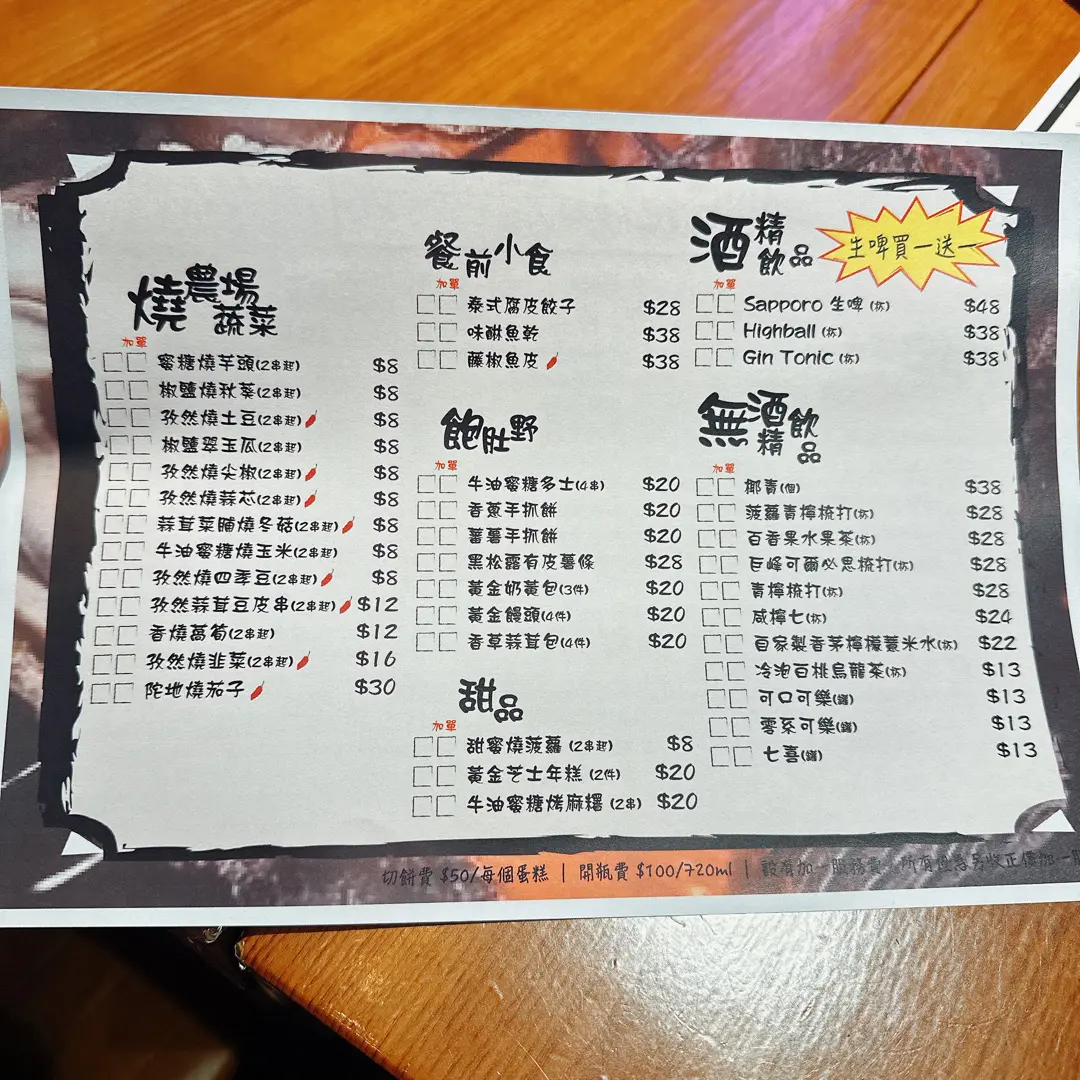 燒農場蔬菜
加單
蜜糖燒芋頭(2串起) $8
椒鹽燒秋葵(2串起) $8
孜然燒土豆(2串起) $8
椒鹽翠玉瓜(2串起) $8
孜然燒尖椒(2串起) $8
孜然燒蒜芯(2串起) $8
蒜茸菜脯燒冬菇(2串起) $8
牛油蜜糖燒玉米(2串起) $8
孜然燒四季豆(2串起) $8
孜然蒜茸豆皮串(2串起) $12
香燒萵筍(2串起) $12
孜然燒韭菜(2串起) $16
陀地燒茄子 $30
餐前小食
加單
泰式腐皮餃子 $28
味醂魚乾 $38
藤椒魚皮 $38
飽肚野
加單
牛油蜜糖多士(4串) $20
香蔥手抓餅 $20
蕃薯手抓餅 $20
黑松露有皮薯條 $28
黃金奶黃包(3件) $20
黃金饅頭(4件) $20
香草蒜茸包(4件) $20
甜品
加單
甜蜜燒菠蘿 (2串起) $8
黃金芝士年糕 (2件) $20
牛油蜜糖烤麻糬 (2串) $20
酒精飲品
生啤買一送一
加單
Sapporo 生啤 (杯) $48
Highball (杯) $38
Gin Tonic (杯) $38
無酒精飲品
加單
椰青(個) $38
菠蘿青檸梳打(杯) $28
百香果水果茶(杯) $28
巨峰可爾必思梳打(杯) $28
青檸梳打(杯) $28
咸檸七(杯) $24
自家製香茅檸檬薏米水(杯) $22
冷泡白桃烏龍茶(杯) $13
可口可樂(罐) $13
零系可樂(罐) $13
七喜(罐) $13
切餅費 $50/每個蛋糕 | 開瓶費 $100/720ml | 設有加一服務費